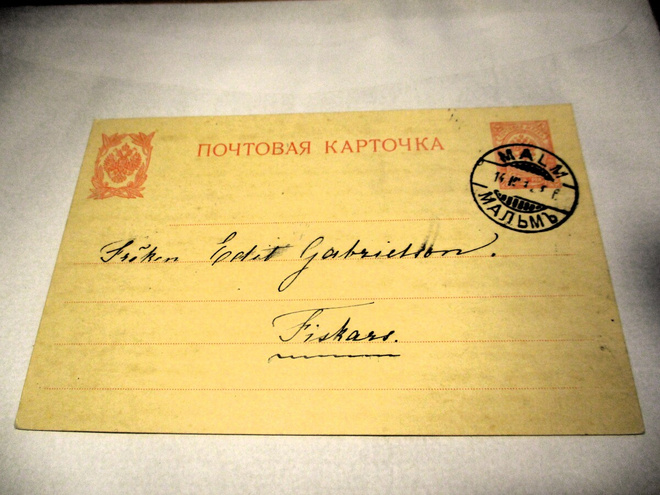 ПОЧТОВАЯ КАРТОЧКА
MALM
МАЛЬМЪ
Fröken Edit Gabrielsson.
Fiskars.